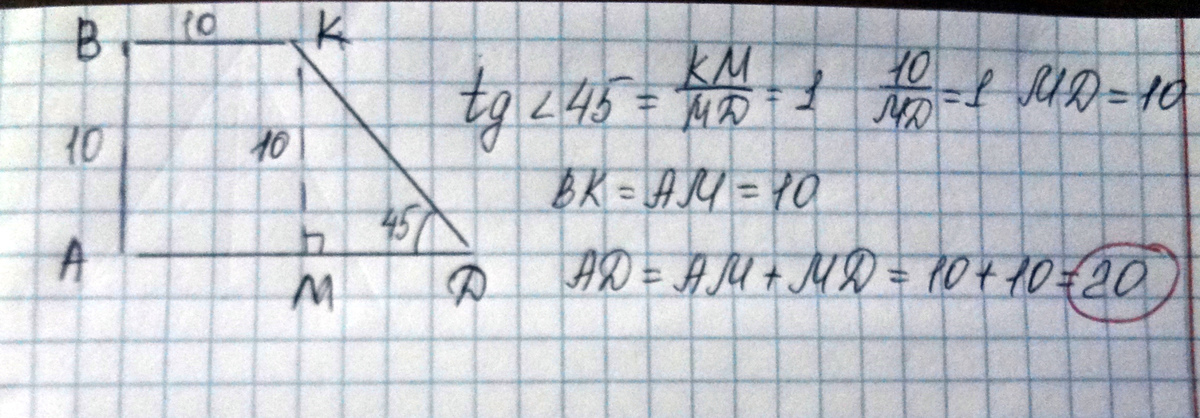 B 10 K
10 10 45
A M D
tg <45 = KM/MD = 1 10/MD = 1 MD = 10
BK = AM = 10
AD = AM + MD = 10 + 10 = 20